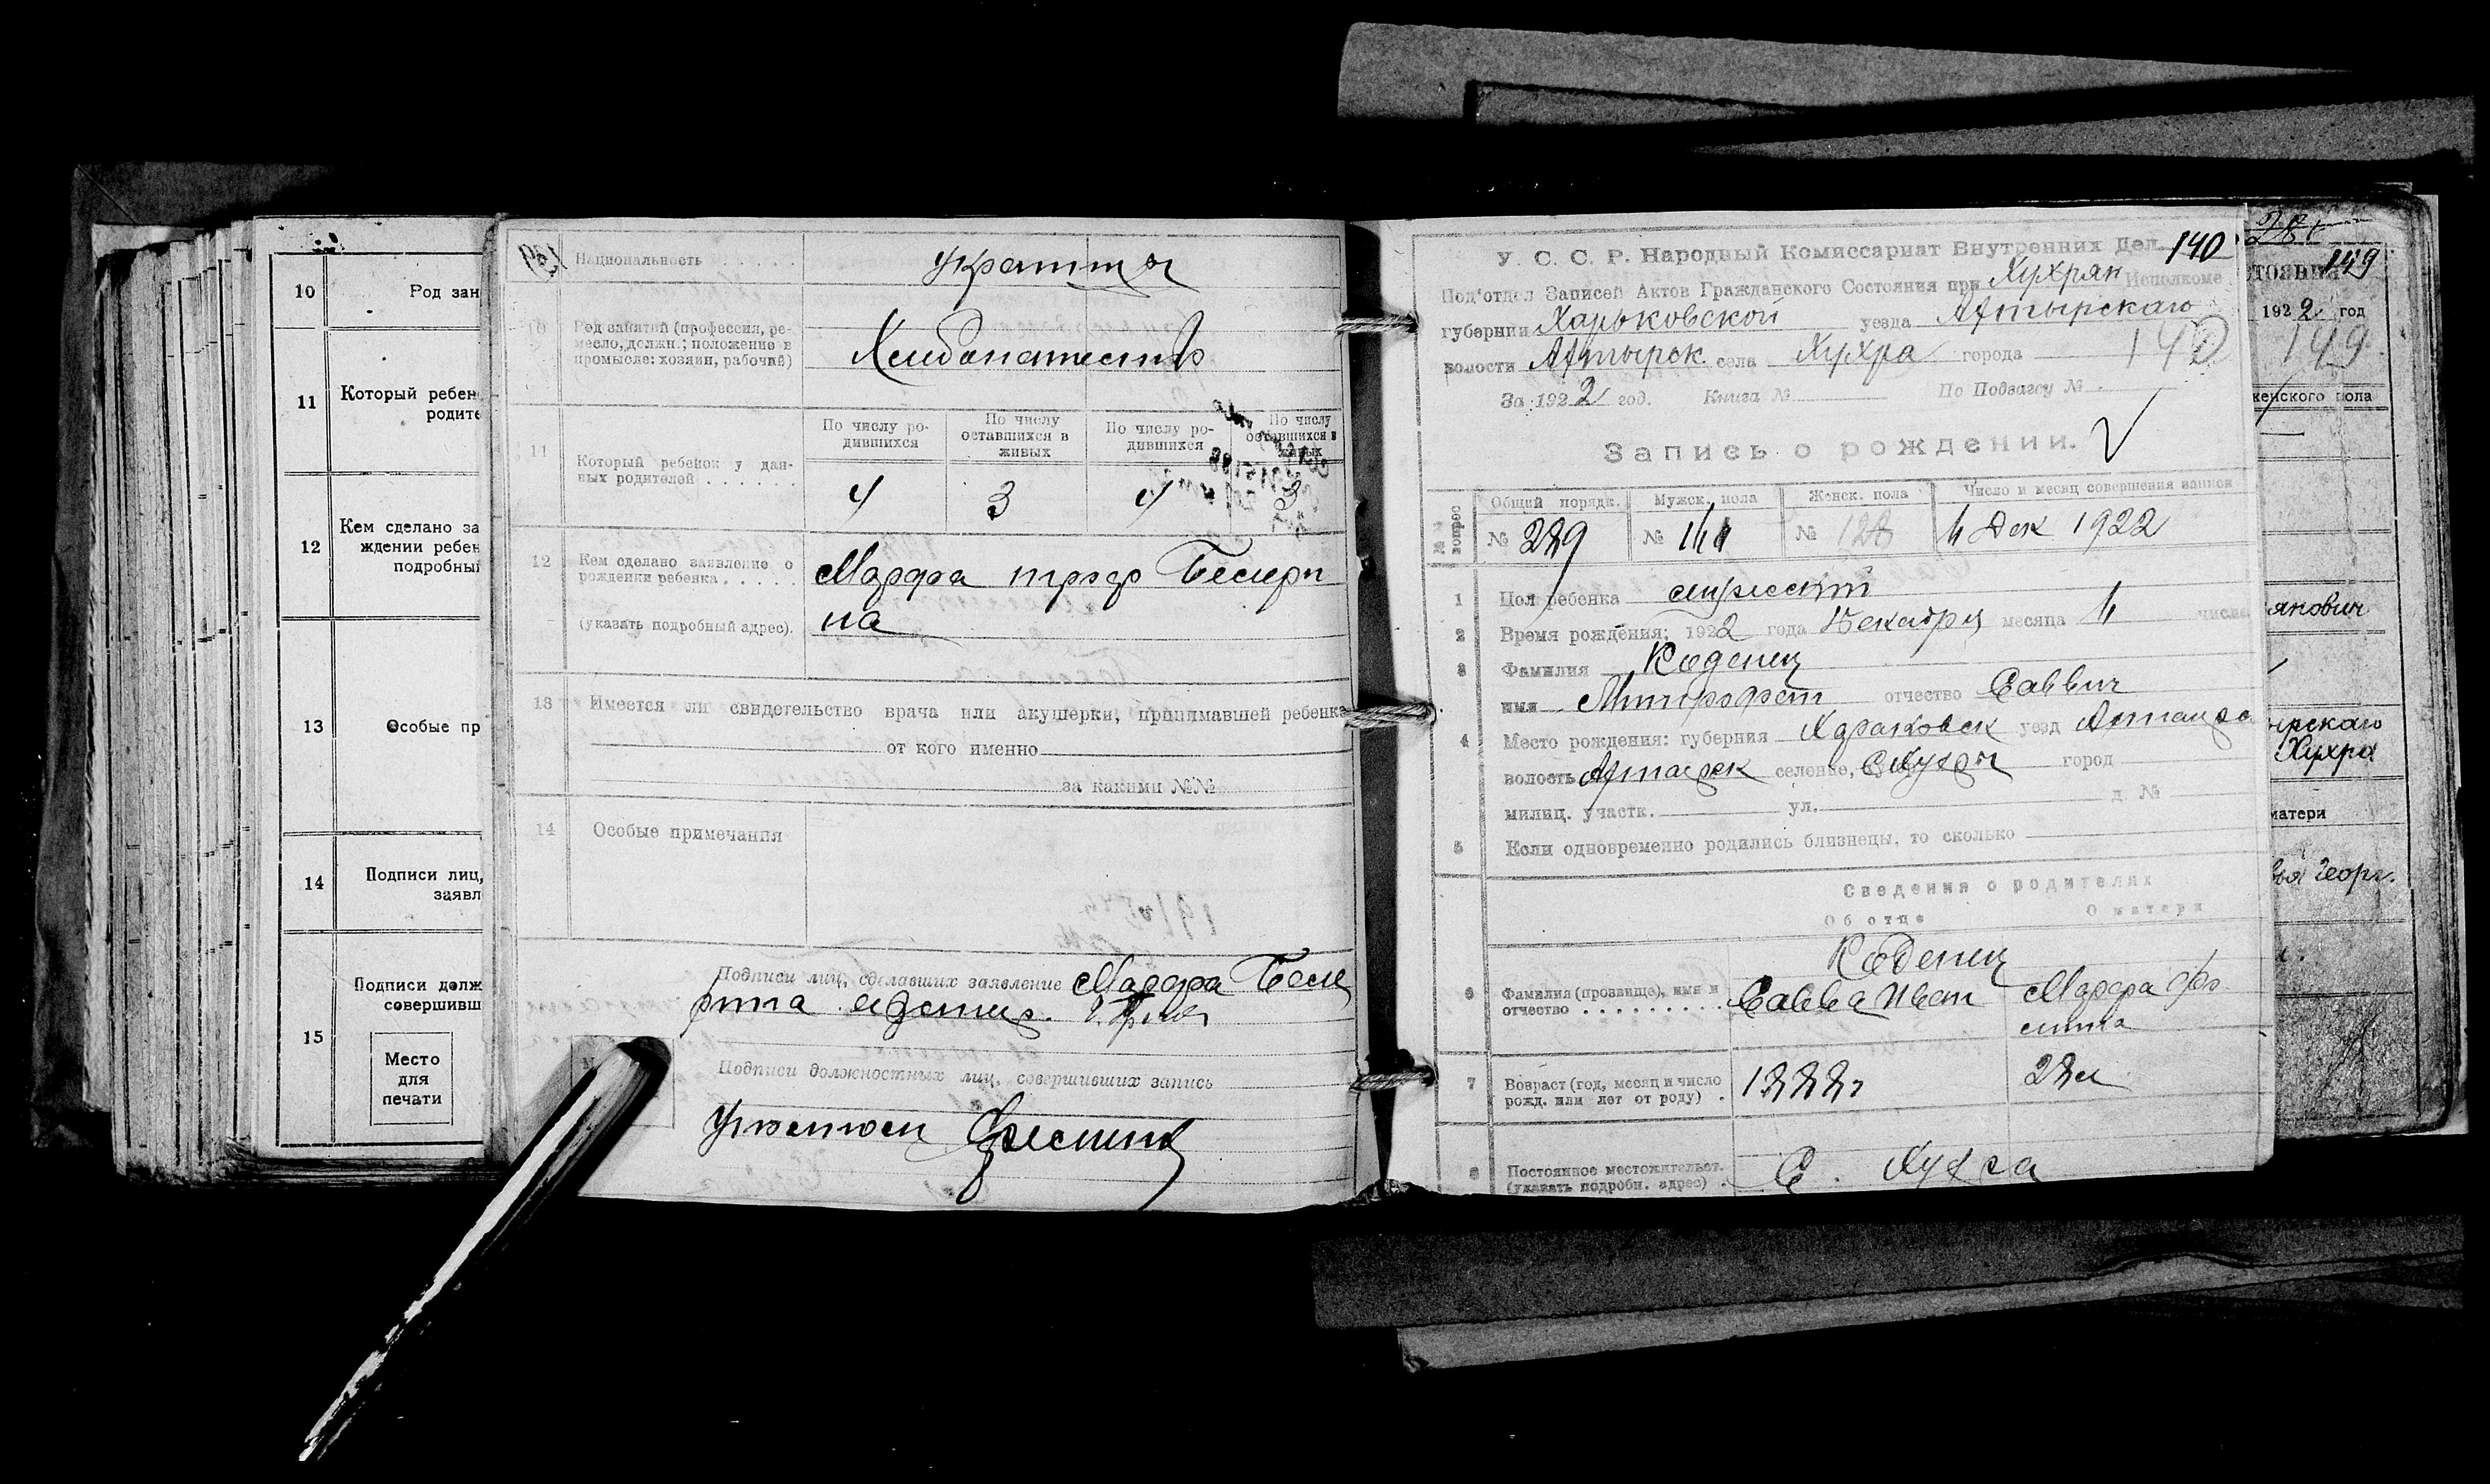 10
Род зан
11
Который ребен
родите
12
Кем сделано за
ждении ребен
подробны
13
Особые пр
14
Подписи лиц,
заявл
15
Подписи долж
совершивш
Место
для
печати
139
Национальность
10
Род занятий (профессия, ре-
месло, должн.; положение в
промысле: хозяин, рабочий)
11
Который ребенок у дан-
ных родителей
По числу ро-
дившихся
По числу
оставшихся в
живых
По числу ро-
дившихся
По числу
оставшихся в
живых
4 3 4 3
12
Кем сделано заявление о
рождении ребенка
(указать подробный адрес).
Марфа
на
13
Имеется ли свидетельство врача или акушерки, принимавшей ребенка
от кого именно
за какими №№
14
Особые примечания
Подписи лиц, сделавших заявление Марфа
Подписи должностных лиц, совершивших запись
140
У. С. С. Р. Народный Комиссариат Внутренних Дел.
Под'отдел Записей Актов Гражданского Состояния при Хухрян Исполкоме
губернии Харьковской уезда Ахтырскаго
волости Ахтырск села Хухра города
За 1922 год. Книга № По Подзагсу №
Запись о рождении.
№№ вопрос
Общий порядк. Мужск. пола Женск. пола Число и месяц совершения записи
№ 289 № № 128 4 Дек 1922
1 Пол ребенка мужеский
2 Время рождения: 1922 года Декабря месяца 4 числа
3 Фамилия Коденец
имя Митрофан отчество Саввич
4 Место рождения: губерния Харьковск уезд
волость селение, С Хухра город
милиц. участк. ул. д. №
5 Если одновременно родились близнецы, то сколько
Сведения о родителях
Об отце О матери
Коденец
6 Фамилия (прозвище), имя и
отчество
Савва Иван Марфа
7 Возраст (год, месяц и число
рожд. или лет от роду)
1888г 28л
8 Постоянное местожительст.
(указать подробн. адрес)
С. Хухра
281
149
тояния
1922 год
149
женского пола
янович
ырскаго
Хухра
матери
Геори.